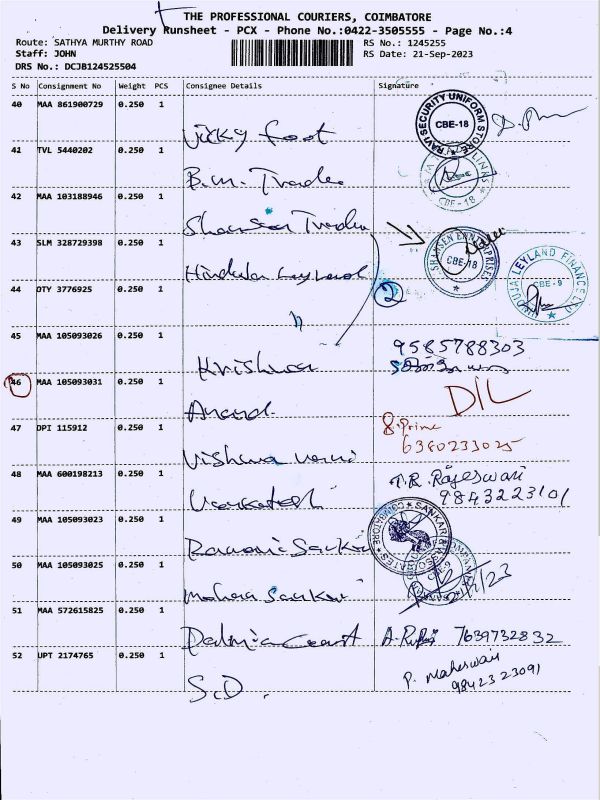 THE PROFESSIONAL COURIERS, COIMBATORE
Delivery Runsheet - PCX - Phone No.:0422-3505555 - Page No.:4
Route: SATHYA MURTHY ROAD
RS No.: 1245255
Staff: JOHN
RS Date: 21-Sep-2023
DRS No.: DCJB124525504
S No Consignment No Weight PCS Consignee Details Signature
40 MAA 861900729 0.250 1
Vicky foot
RAVI SECURITY UNIFORM STORE CBE-18
41 TVL 5440202 0.250 1
B.M. Trade
LINKS CBE-18
42 MAA 103188946 0.250 1
Shamsen Trade
43 SLM 328729398 0.250 1
Hinduja Leyland
SHAMSEN ENTERPRISES CBE-18
HINDUJA LEYLAND FINANCE LTD CBE-9
44 OTY 3776925 0.250 1
"
2
45 MAA 105093026 0.250 1
Krishna
9585788303
46 MAA 105093031 0.250 1
Anand
D/L
47 DPI 115912 0.250 1
Vishwa
S. Prime
6380233025
48 MAA 600198213 0.250 1
Venkatesh
T.R. Rajeswari
9843223101
49 MAA 105093023 0.250 1
Ramani Sankar
SANKARI & ASSOCIATES COIMBATORE
50 MAA 105093025 0.250 1
Mohan Sankar
CBE-9
51 MAA 572615825 0.250 1
Dalmia Ceant
7639732832
52 UPT 2174765 0.250 1
S.D.
P. Maheswari
9842323091